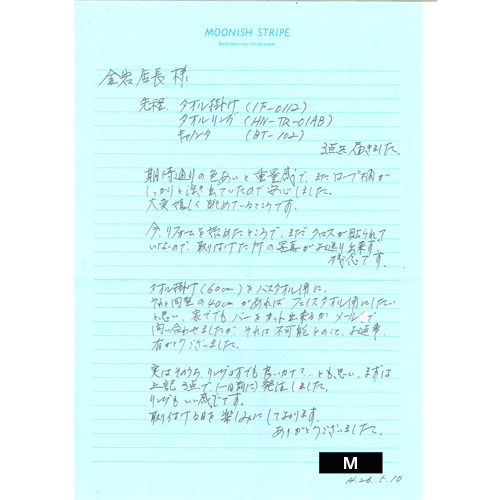 MOONISH STRIPE
Selected color stripe paper
金岩店長様
先程 タオル掛け(IF-0112)
タオルリング(HN-TR-01AB)
(BT-102)
3点共届きました。
期待通りの色あいと重量感で、またロープ柄が
しっかりと浮き出ていたので安心しました。
大変嬉しく眺めているところです。
今、リフォームを始めたところで、まだクロスが貼られて
いないので、取り付けた所の写真がお送り出来ず、
残念です。
タオル掛け(60cm)をバスタオル用に、
それと同型の40cmがあればフェイスタオル用にしたい
と思い、家でもバーをカット出来るかメールで
問い合わせましたが それは不可能とのこと、お返事、
有がとうございました。
実はそのうち、リングの方でも良いカナ?…とも思い、まずは
上記3点で、(一日前に)発注しました。
リングもいい感じです。
取り付ける日を楽しみにしております。
ありがとうございました。
M
H.26.5.10